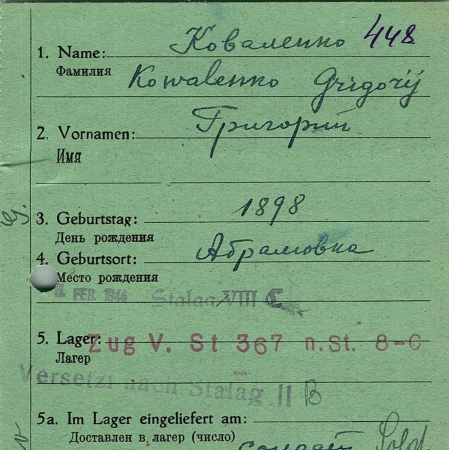 1. Name: Коваленко 448
Фамилия Kowalenko Grigorij
2. Vornamen: Григорий
Имя
3. Geburtstag: 1898
День рождения
4. Geburtsort: Абрамовка
Место рождения
FEB. 1944 Stalag VIII C
5. Lager: Zug V. St 367 n. St. 8-C
Лагер
Versetzt nach Stalag II B
5a. Im Lager eingeliefert am:
Доставлен в лагер (число)
солдат Sold